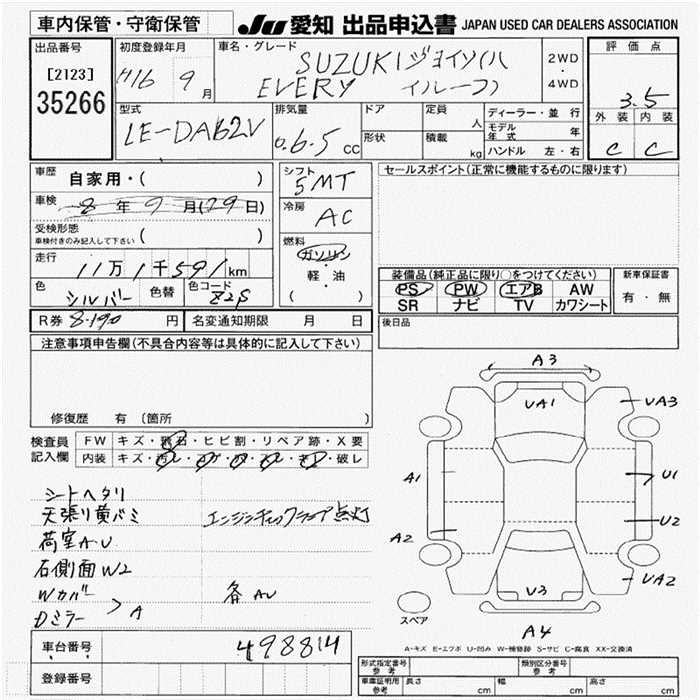 車内保管・守衛保管
JU 愛知 出品申込書 JAPAN USED CAR DEALERS ASSOCIATION
出品番号
[2123]
35266
初度登録年月
H16 9 月
車名・グレード
SUZUKI ジョイン(ハ
EVERY イルーフ)
2WD
・
4WD
評価点
3.5
外装 内装
C C
型式
LE-DA62V
排気量
0.6.5 CC
ドア
形状
定員
人
積載
kg
ディーラー・並行
モデル年式 年
ハンドル 左・右
車歴
自家用・( )
車検
8 年 9 月(29日)
受検形態
車検付きのみ記入して下さい ( )
走行
11万1千591km
色
シルバー
色替
色コード
Z2S
シフト
5MT
冷房
AC
燃料
ガソリン
・
軽・油
( )
セールスポイント(正常に機能するものに限ります)
装備品(純正品に限り○をつけてください)
PS PW エアB AW
SR ナビ TV カワシート
新車保証書
有・無
R券 8.190 円
名変通知期限 月 日
後日品
注意事項申告欄(不具合内容等は具体的に記入して下さい)
修復歴 有 〔箇所
検査員
記入欄
FW キズ・飛石・ヒビ割・リペア跡・X要
内装 キズ・汚レ・コゲ・・・破レ
シートヘタリ
天張り黄バミ エンジンチェックランプ点灯
荷室A.U
右側面W2
Wカバー
Dミラー > A
各AU
A3
UA1
UA3
A1
U1
A2
U2
U3
UA2
A4
スペア
A-キズ E-エクボ U-凹み W-補修跡 S-サビ C-腐食 XX-交換済
車台番号
498814
登録番号
形式指定番号
参考
類別区分番号
参考
車庫証明用
参考
長さ cm
幅 cm
高さ cm